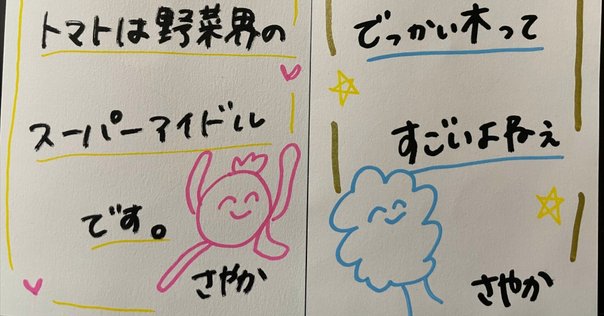 トマトは野菜界の
スーパーアイドル
です。
さやか
でっかい木って
すごいよねぇ
さやか